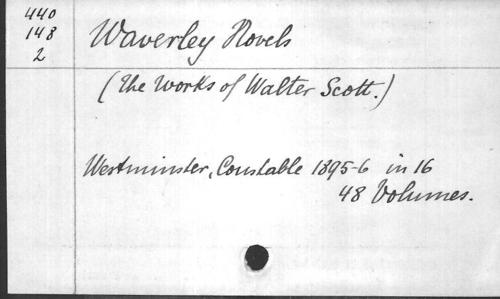 440
148
2
Waverley Novels
(The Works of Walter Scott.)
Westminster, Constable 1895-6 in 16
48 Volumes.